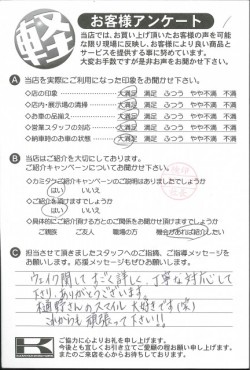 軽
お客様アンケート
当店では、お買い上げ頂いたお客様の声を可能
な限り現場に反映し、お客様により良い商品と
サービスを提供する事に努めています。
大変お手数ですが是非お声をお聞かせ下さい。
A 当店を実際にご利用になった印象をお聞かせ下さい。
◇店の印象 大満足 満足 ふつう やや不満 不満
◇店内・展示場の清掃 大満足 満足 ふつう やや不満 不満
◇お車の品揃え 大満足 満足 ふつう やや不満 不満
◇営業スタッフの対応 大満足 満足 ふつう やや不満 不満
◇納車時のお車の状態 大満足 満足 ふつう やや不満 不満
B 当店はご紹介を大切にしております。
ご紹介キャンペーンについてお聞かせ下さい。
◇カミタケご紹介キャンペーンのご説明はありましたでしょうか
はい いいえ
◇ご紹介を頂けますでしょうか
はい いいえ
◇具体的にご紹介頂ける方とのご関係をお聞かせ頂けますでしょうか
ご親族 ご友人 職場の方 機会があれば紹介したい
C 担当させて頂きましたスタッフへのご指摘、ご指導メッセージを
お願いします。応援メッセージもぜひお願いします。
ウェイク関して すごく詳しく、丁寧な対応して
下さり、ありがとうございます。
樋野さんのスマイル 大好きです(笑)
これからも頑張って下さい!!
K
ご協力に心よりお礼を申し上げます。
今後とも宜しくお引き立てご愛顧の程お願い申し上げます。
またのご来店を心からお待ちしております。